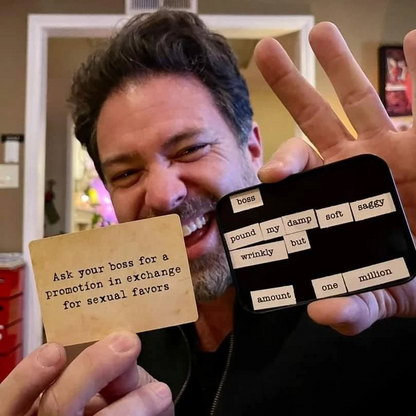 Ask your boss for a
promotion in exchange
for sexual favors
boss
pound my damp soft saggy
wrinkly but
amount one million